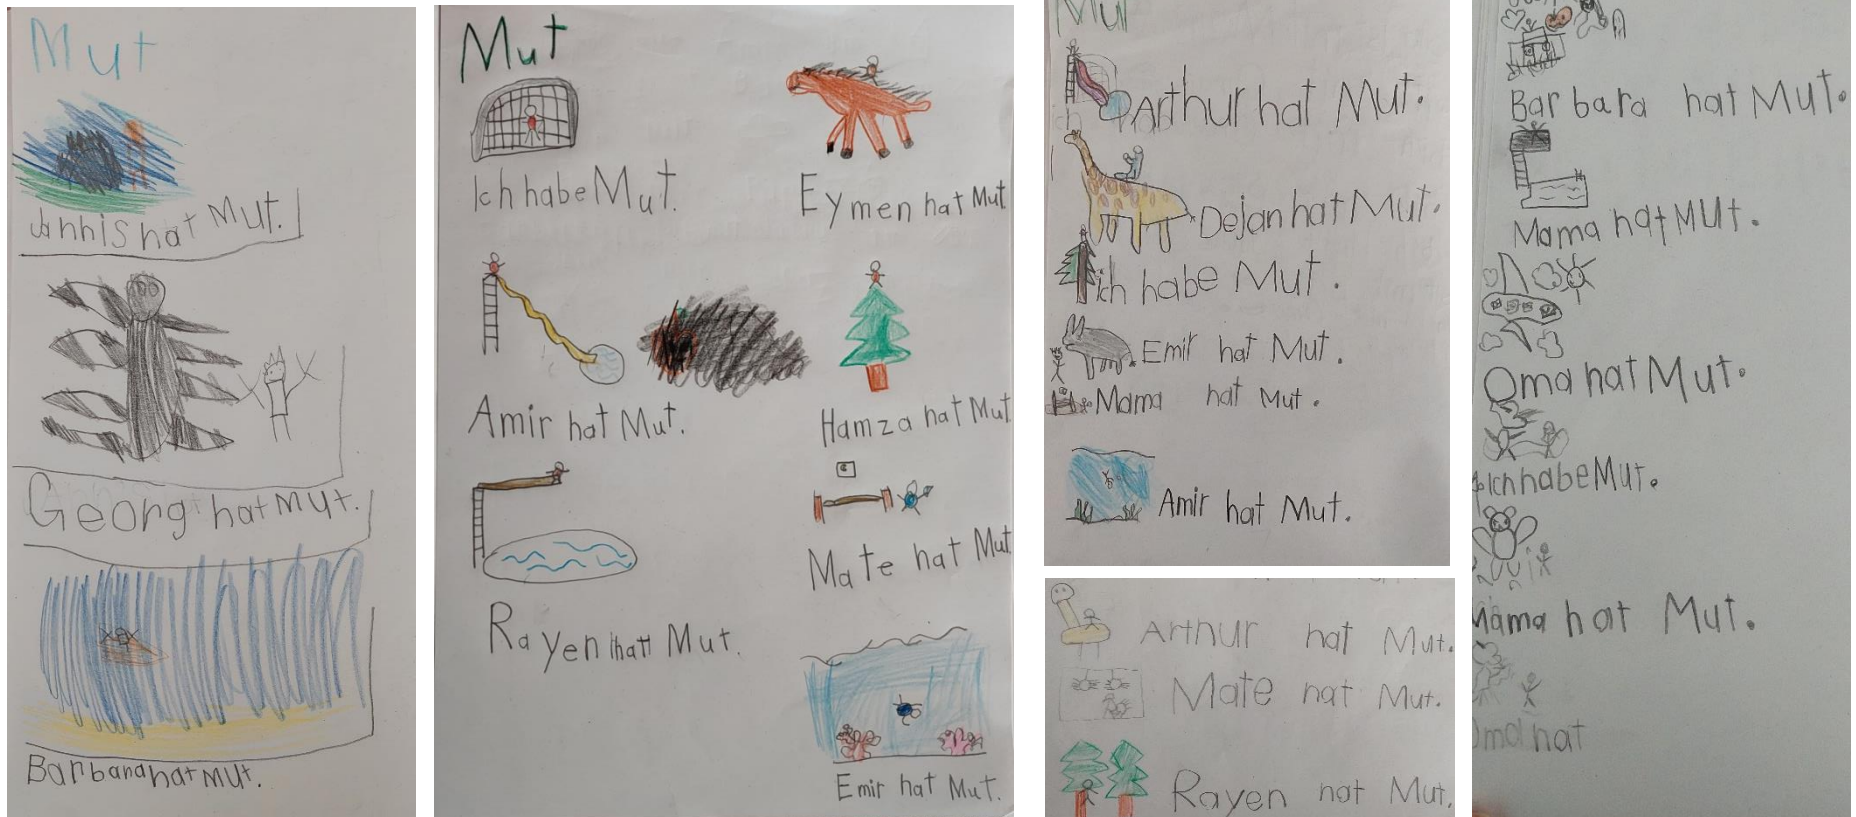 Mut
Jannis hat Mut.
Georg hat Mut.
Barbara hat Mut.
Mut
Ich habe Mut.
Eymen hat Mut
Amir hat Mut.
Hamza hat Mut
Mate hat Mut
Rayen hat Mut.
Emir hat Mut.
Mut
Arthur hat Mut.
Dejan hat Mut.
Ich habe Mut.
Emir hat Mut.
Mama hat Mut.
Amir hat Mut.
Arthur hat Mut.
Mate hat Mut.
Rayen hat Mut.
Barbara hat Mut.
Mama hat Mut.
Oma hat Mut.
Ich habe Mut.
Mama hat Mut.
Oma hat